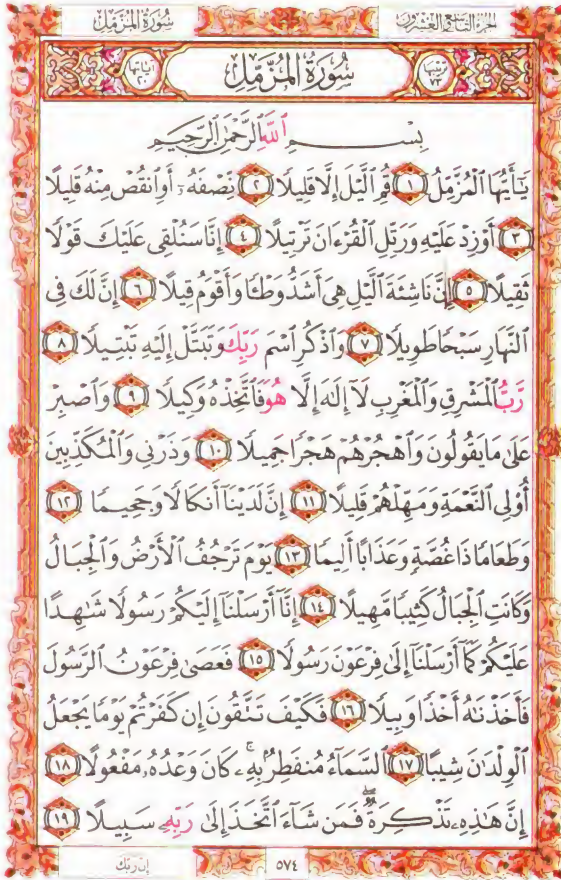 سُورَةُ المُزَّمِّل
الجزء التاسع والعشرون
آياتها ٢٠
سُورَةُ المُزَّمِّل
ترتيبها ٧٣
بِسْمِ اللَّهِ الرَّحْمَٰنِ الرَّحِيمِ
يَٰٓأَيُّهَا ٱلْمُزَّمِّلُ ١ قُمِ ٱلَّيْلَ إِلَّا قَلِيلًا ٢ نِّصْفَهُۥٓ أَوِ ٱنقُصْ مِنْهُ قَلِيلًا
٣ أَوْ زِدْ عَلَيْهِ وَرَتِّلِ ٱلْقُرْءَانَ تَرْتِيلًا ٤ إِنَّا سَنُلْقِى عَلَيْكَ قَوْلًا
ثَقِيلًا ٥ إِنَّ نَاشِئَةَ ٱلَّيْلِ هِىَ أَشَدُّ وَطْـًٔا وَأَقْوَمُ قِيلًا ٦ إِنَّ لَكَ فِى
ٱلنَّهَارِ سَبْحًا طَوِيلًا ٧ وَٱذْكُرِ ٱسْمَ رَبِّكَ وَتَبَتَّلْ إِلَيْهِ تَبْتِيلًا ٨
رَّبُّ ٱلْمَشْرِقِ وَٱلْمَغْرِبِ لَآ إِلَٰهَ إِلَّا هُوَ فَٱتَّخِذْهُ وَكِيلًا ٩ وَٱصْبِرْ
عَلَىٰ مَا يَقُولُونَ وَٱهْجُرْهُمْ هَجْرًا جَمِيلًا ١٠ وَذَرْنِى وَٱلْمُكَذِّبِينَ
أُو۟لِى ٱلنَّعْمَةِ وَمَهِّلْهُمْ قَلِيلًا ١١ إِنَّ لَدَيْنَآ أَنكَالًا وَجَحِيمًا ١٢
وَطَعَامًا ذَا غُصَّةٍ وَعَذَابًا أَلِيمًا ١٣ يَوْمَ تَرْجُفُ ٱلْأَرْضُ وَٱلْجِبَالُ
وَكَانَتِ ٱلْجِبَالُ كَثِيبًا مَّهِيلًا ١٤ إِنَّآ أَرْسَلْنَآ إِلَيْكُمْ رَسُولًا شَٰهِدًا
عَلَيْكُمْ كَمَآ أَرْسَلْنَآ إِلَىٰ فِرْعَوْنَ رَسُولًا ١٥ فَعَصَىٰ فِرْعَوْنُ ٱلرَّسُولَ
فَأَخَذْنَٰهُ أَخْذًا وَبِيلًا ١٦ فَكَيْفَ تَتَّقُونَ إِن كَفَرْتُمْ يَوْمًا يَجْعَلُ
ٱلْوِلْدَٰنَ شِيبًا ١٧ ٱلسَّمَآءُ مُنفَطِرٌۢ بِهِۦ ۚ كَانَ وَعْدُهُۥ مَفْعُولًا ١٨
إِنَّ هَٰذِهِۦ تَذْكِرَةٌ ۖ فَمَن شَآءَ ٱتَّخَذَ إِلَىٰ رَبِّهِۦ سَبِيلًا ١٩
٥٧٤
إن ربك